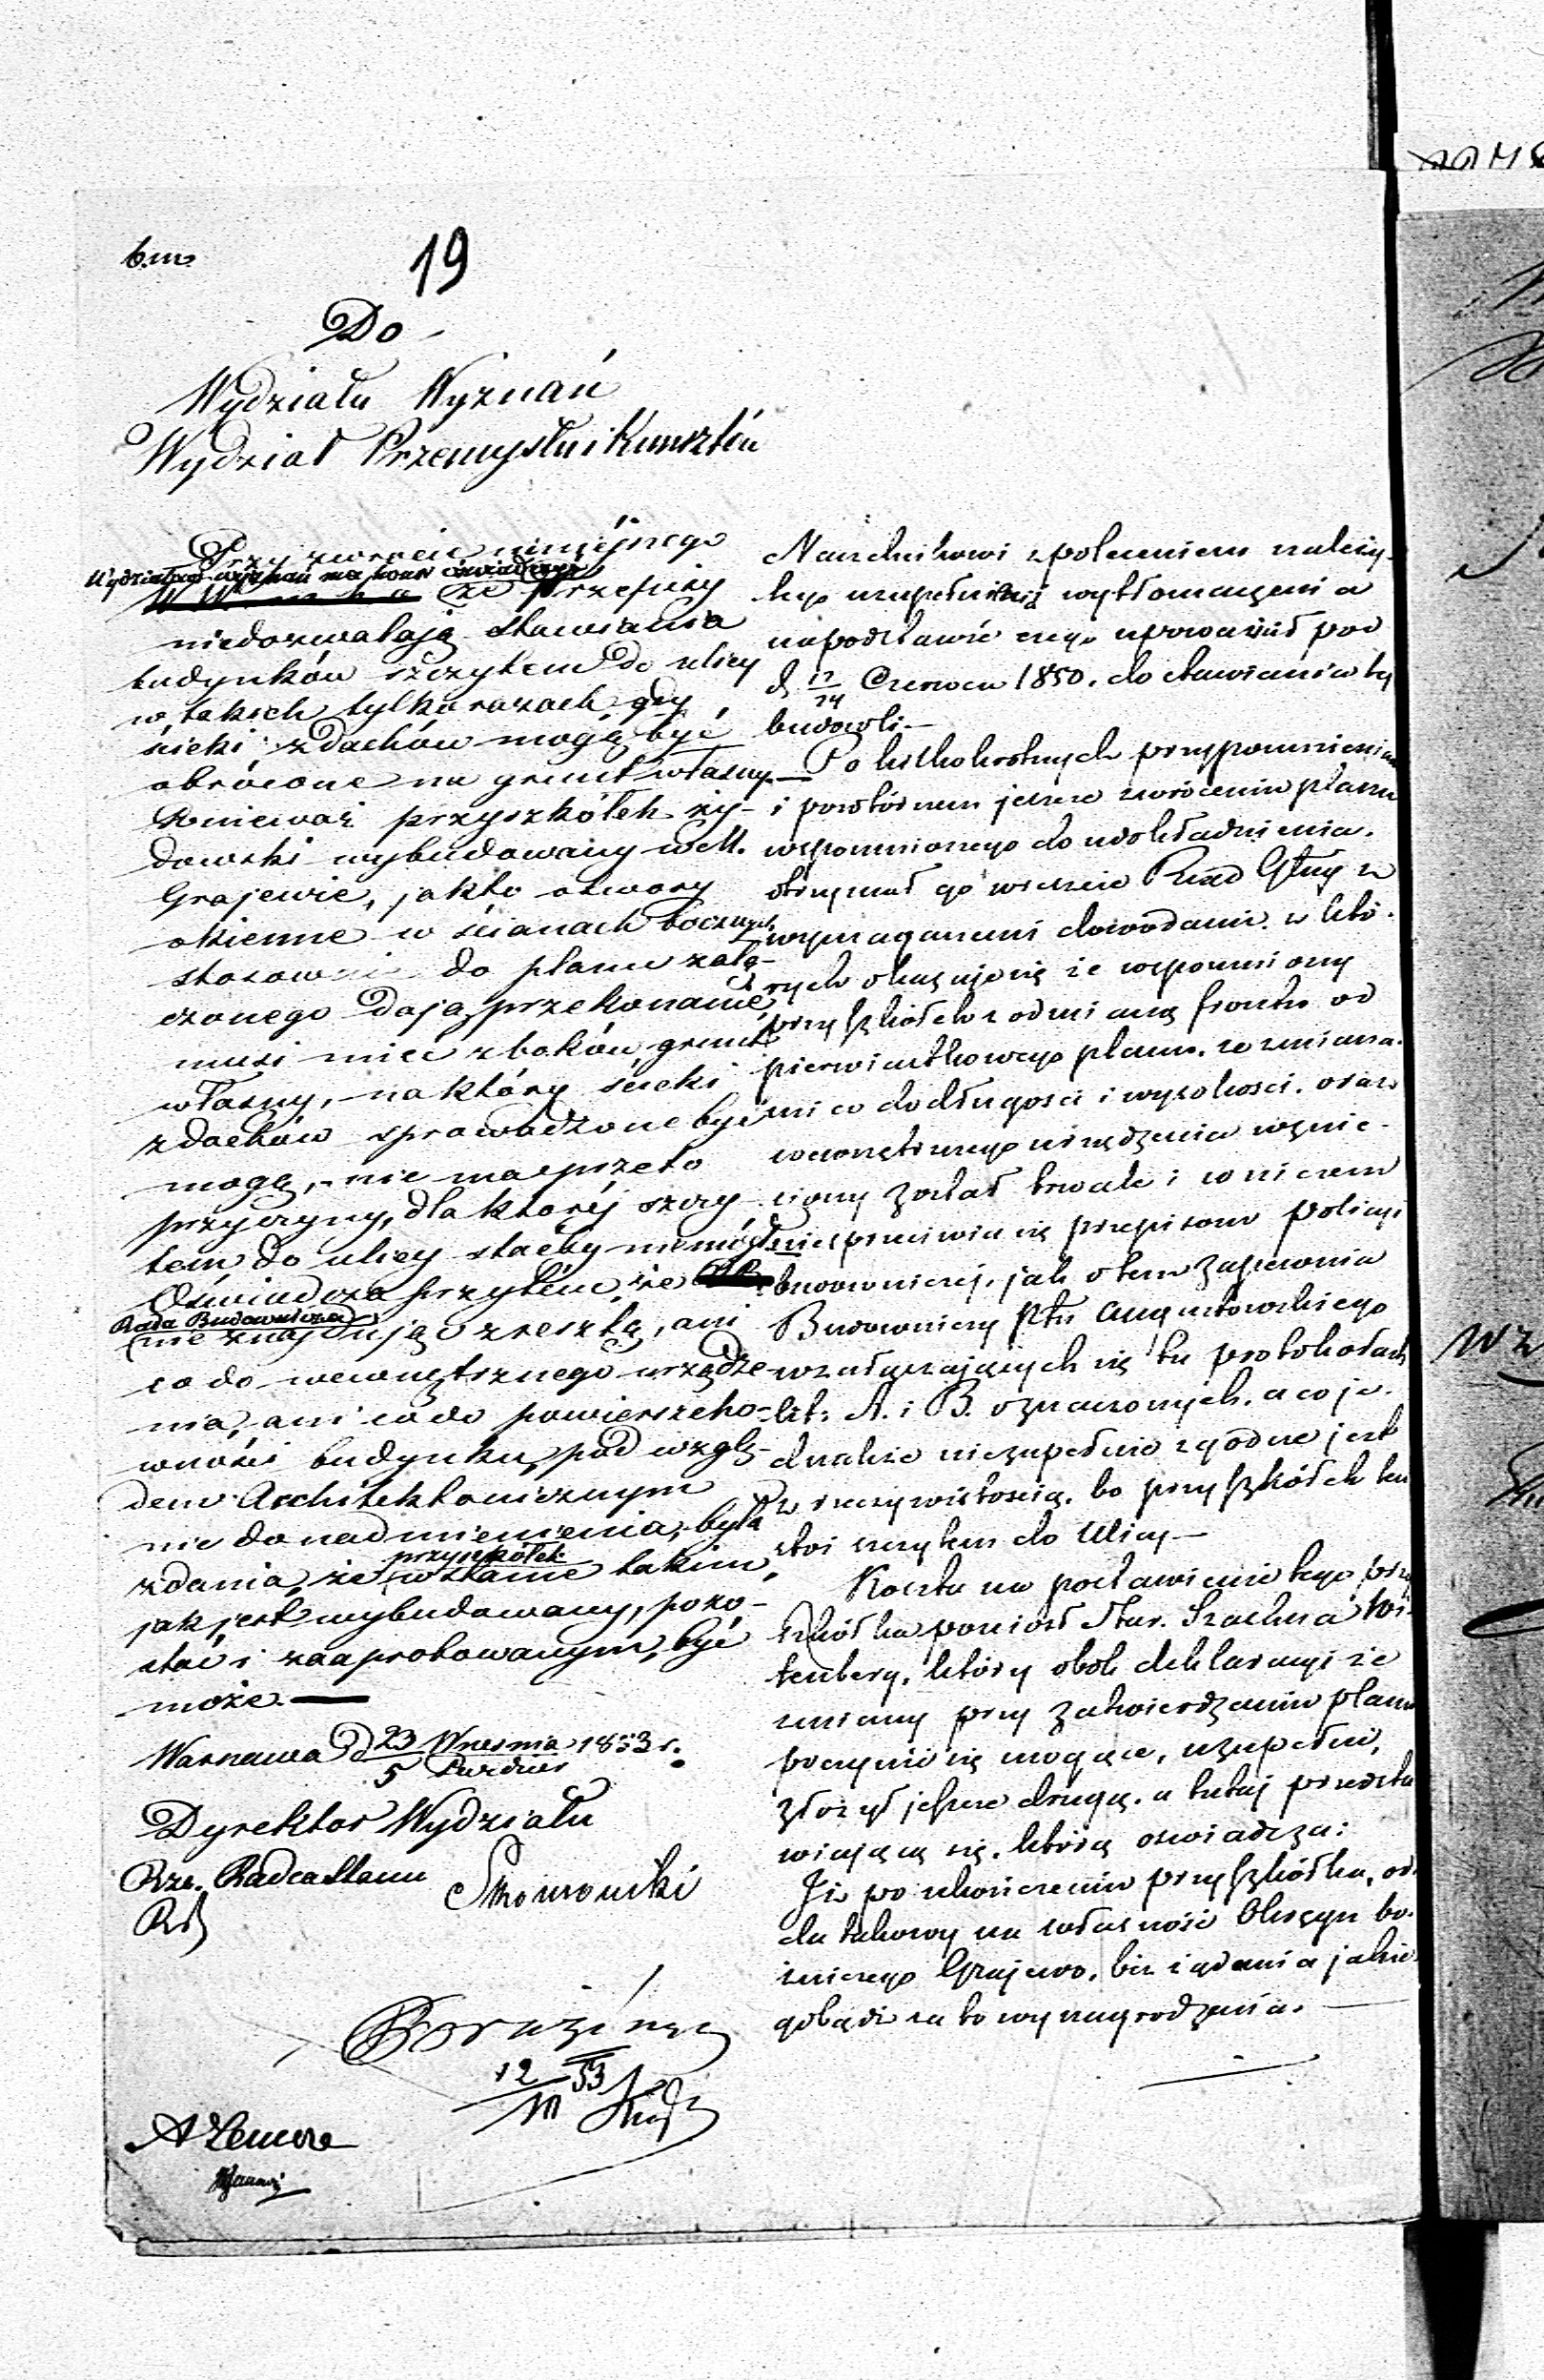 b.m.
19
Do
Wydziału Wyznań
Wydział Przemysłu i Kunsztów
Przy zwrocie niniéjszego
Wydziałowi wyznań ma honor oświadczyć
że Przepisy
niedozwalają stawiania
budynków szczytem do ulicy
w takich tylko razach gdy
ścieki z dachów mogą być
obrócone na grunt własny.—
Ponieważ przyszkółek ży-
dowski wybudowany w M.
Grajewie, jak to otwory
okienne w ścianach bocznych
stosownie do planu załą-
czonego dają przekonanie,
musi mieć z boków grunt
własny, na który ścieki
z dachów sprowadzone być
mogą, nie ma przeto
przyczyny, dla któréj szczy-
tem do ulicy staćby niemógł.
Oświadcza przytém, że
Rada Budownicza
nie znajdując zresztą, ani
co do wewnętrznego urządze-
nia, ani co do powierzcho-
wności budynku, pod wzglę-
dem Architektonicznym
nic do nadmienienia, była
zdania, że przyszkółek
w stanie takim,
jak jest wybudowany, pozo-
stać i zaaprobowanym być
może.—
Warszawa d 23 Września / 5 Paździer 1853 r.
Dyrektor Wydziału
Rze. Radca Stanu
12 53
10
Naczelnikowi z poleceniem należy-
tego uzupełnienia wytłomaczenia
na podstawie czego upoważnił pod
d 12/24 Czerwca 1850. do stawiania téj
budowli.—
Po kilkokrotnych przypomnieniach
i powtórnem jeszcze zwróceniu planu
wspomnionego do udokładnienia.
otrzymał go wreszcie Rząd Głny z
wymaganemi dowodami. z któ-
rych okazuje się że wspomniony
przyszkółek z odmianą frontu od
pierwiastkowego planu. ze zmiana-
mi co do długości i wysokości. oraz
wewnętrznego urządzenia wznie-
siony został trwale i w niczem
niesprzeciwia się przepisom policyi
budowniczej. jak o tem zapewnia
Budowniczy Pttu Augustowskiego
w załączających się tu protokołach
lit: A. i B. oznaczonych. a co je-
dnakże niezupełnie zgodne jest
z rzeczywistością. bo przyszkółek ten
stoi szczytem do Ulicy—
Koszta na postawienie tego przy
szkółka poniósł Star. Szachna Wi-
tenberg. który obok deklaracyi że
zmiany przy zatwierdzaniu planu
poczynić się mogące, uzupełni,
złożył jeszcze drugą. a tutaj przedsta
wiającą się. którą oswiadcza:
Iż po ukończeniu przyszkółka, od-
da takowy na własność Okręgu bo-
żniczego Grajewo, bez żądania jakie-
gobądź za to wynagrodzenia.—